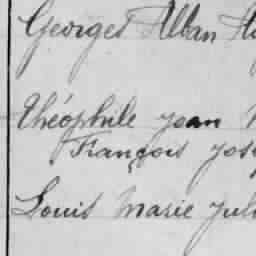 Georges Alban
Théophile Jean
François Jos
Louis Marie Jul